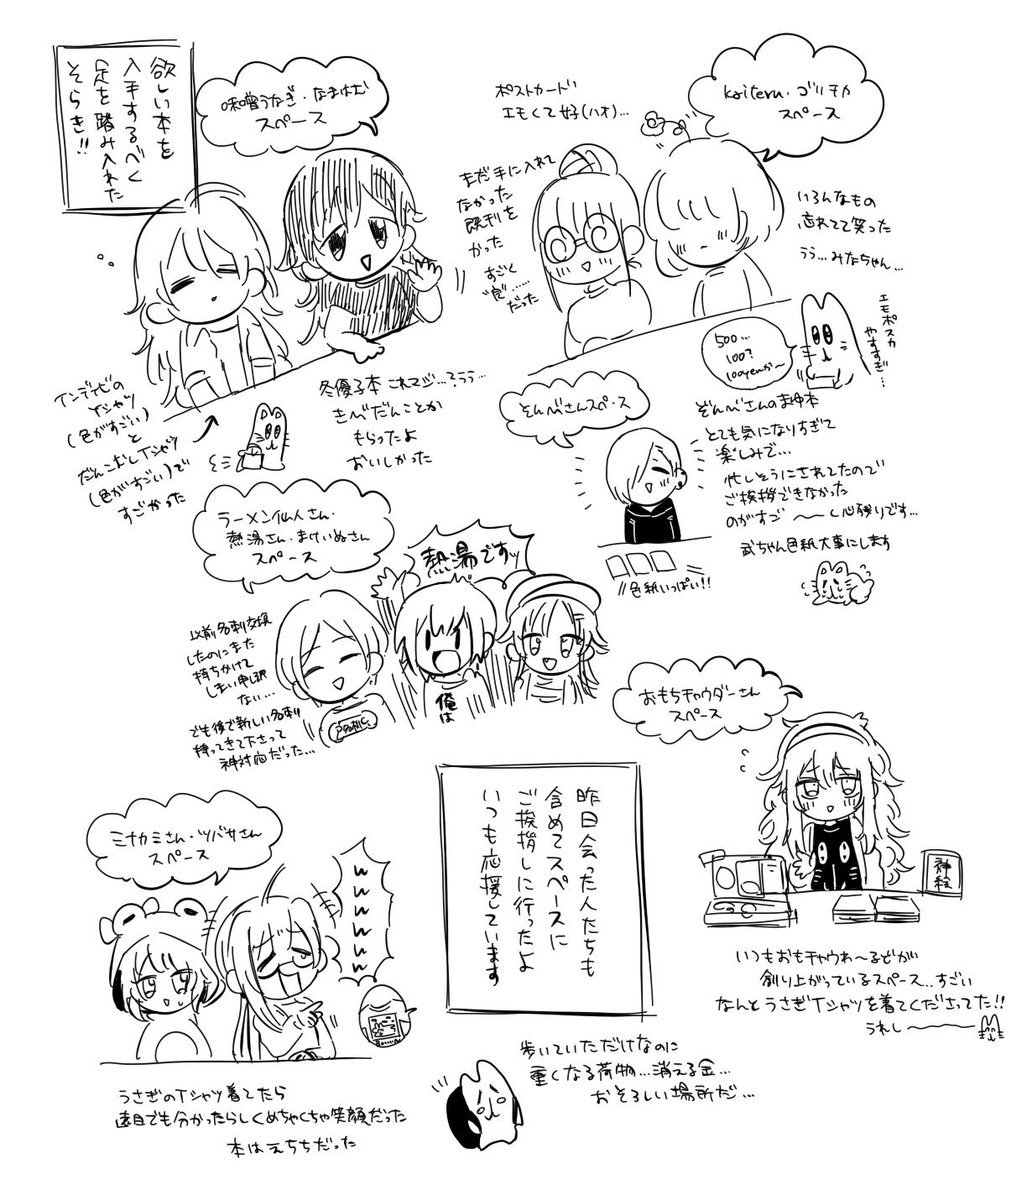 欲しい本を
入手するべく
足を踏み入れた
そらき!!
味噌うなぎ・なまはむ
スペース
ポストカードい
エモくて好(ハオ)…
koiteru・ゴリモカ
スペース
まだ手に入れて
なかった
既刊を
かった
すごく
"良"……
だった
いろんなもの
忘れてて笑った
うう…みなちゃん…
エモポスカ
やすすぎ…
500…
100?
100yenか〜
インディビの
Tシャツ
(色がすごい)
と
だんこむしTシャツ
(色がすごい)で
すごかった
冬優子本 これマジ…?うう…
きびだんことか
もらったよ
おいしかった
ぞんべさんスペース
ぞんべさんのまゆ本
とても気になりすぎて
楽しみで…
忙しそうにされてたので
ご挨拶できなかった
のがすご〜く心残りです…
武ちゃん色紙大事にします
色紙いっぱい!!
ラーメン仙人さん・
熱湯さん・まけいぬさん
スペース
熱湯ですッ
俺は
以前名刺交換
したのにまた
持ちかけて
しまい申し訳
ない…
でも後で新しい名刺
持ってきて下さって
神対応だった…
おもちチャウダーさん
スペース
神絵
いつもおもチャウわ〜るどが
創り上がっているスペース…すごい
なんとうさぎTシャツを着てくださってた!!
うれし〜
昨日会った人たちも
含めてスペースに
ご挨拶しに行ったよ
いつも応援しています
ミナカミさん・ツバサさん
スペース
wwwwwww
うさぎのTシャツ着てたら
遠目でも分かったらしくめちゃくちゃ笑顔だった
本はえちちだった
歩いていただけなのに
重くなる荷物…消える金…
おそろしい場所だ…